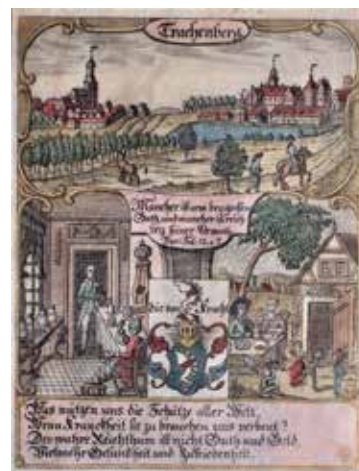 Trachenberg
Mancher ist arm bey großem
Guth, und mancher ist reich
bey seiner Armuth.
Was nutzen uns die Schätze aller Welt,
Wenn Kranckheit sie zu brauchen uns verbeut?
Der wahre Reichthum ist nicht Guth und Geld
Vielmehr Gesundheit und Zufriedenheit.